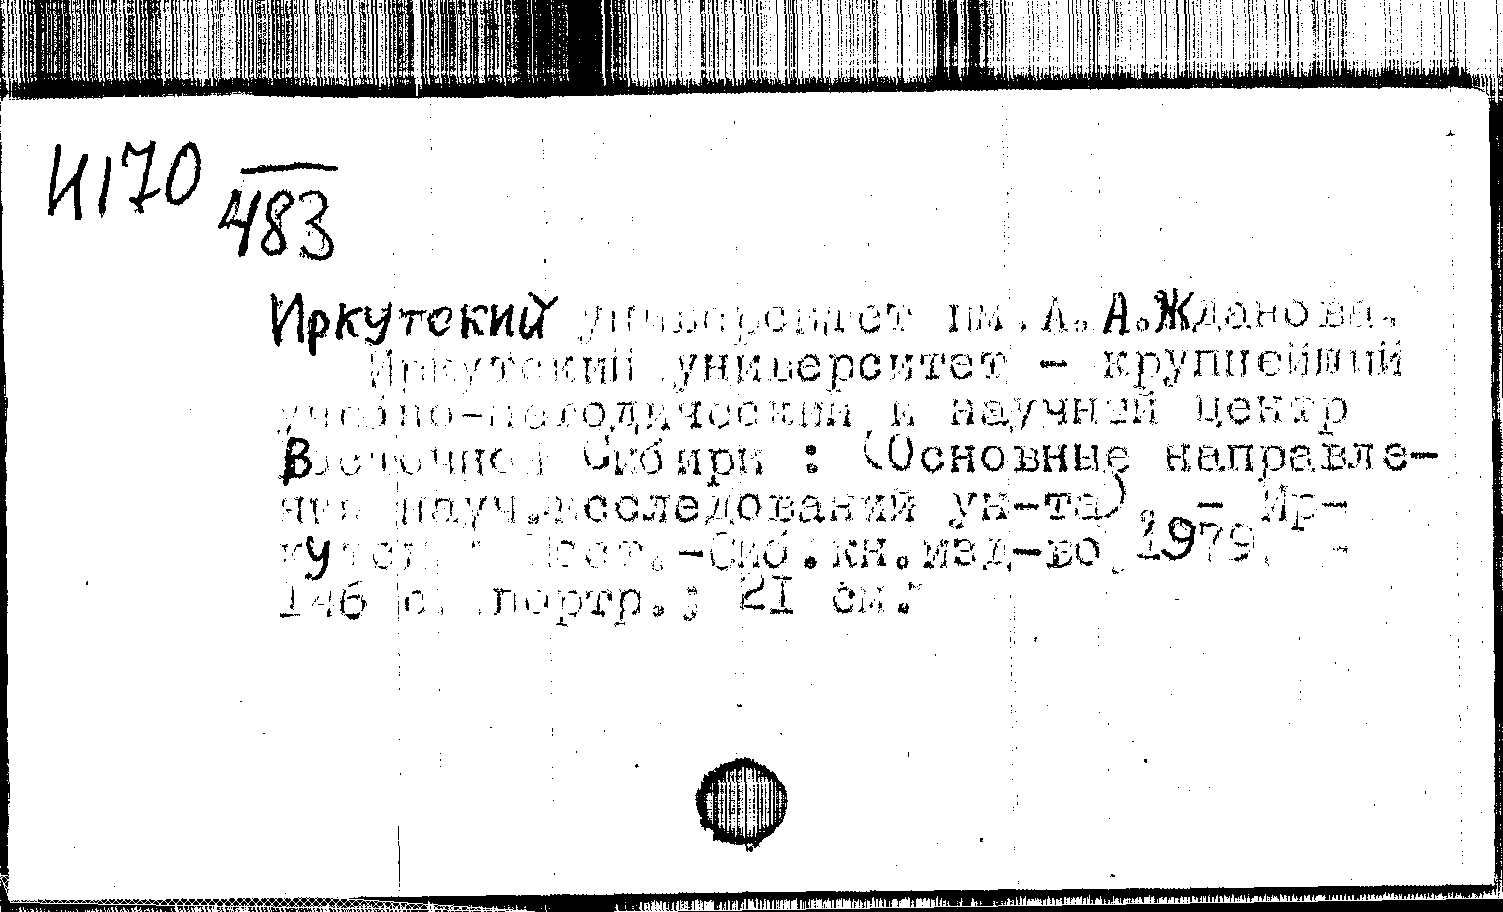 И170
483
Иркутский университет им. А. А. Жданова.
Иркутский университет – крупнейший
учебно-методический и научный центр
Восточной Сибири : (Основные направле-
ния науч. исследований ун-та). – Ир-
кутск : Вост.-Сиб. кн. изд-во, 1979. –
146 с. портр. ; 21 см.